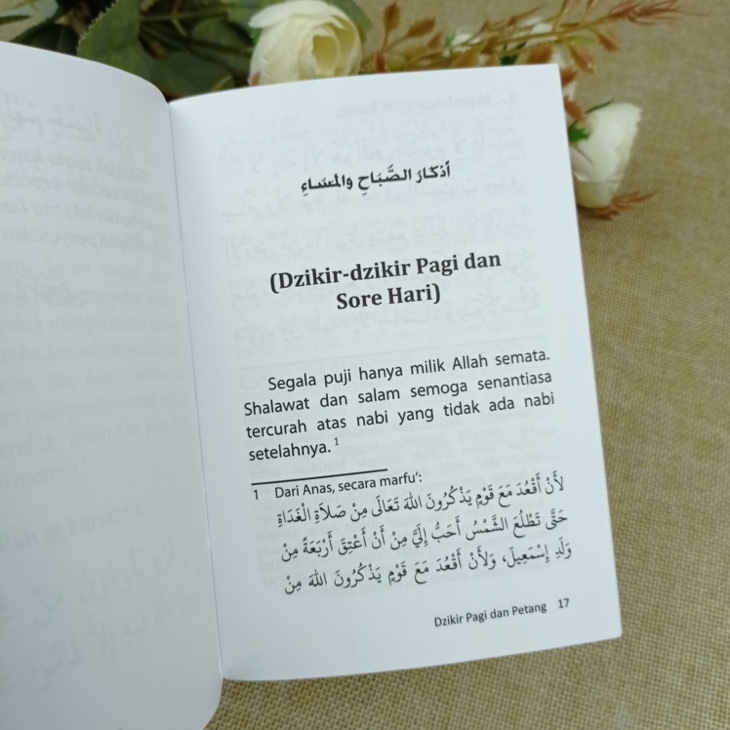 أذكار الصَّبَاحِ والمسَاءِ
(Dzikir-dzikir Pagi dan
Sore Hari)
Segala puji hanya milik Allah semata.
Shalawat dan salam semoga senantiasa
tercurah atas nabi yang tidak ada nabi
setelahnya. 1
1 Dari Anas, secara marfu':
لأَنْ أَقْعُدَ مَعَ قَوْمٍ يَذْكُرُونَ اللهَ تَعَالَى مِنْ صَلاَةِ الْغَدَاةِ
حَتَّى تَطْلُعَ الشَّمْسُ أَحَبُّ إِلَيَّ مِنْ أَنْ أَعْتِقَ أَرْبَعَةً مِنْ
وَلَدِ إِسْمَعِيلَ، وَلأَنْ أَقْعُدَ مَعَ قَوْمٍ يَذْكُرُونَ اللهَ مِنْ
Dzikir Pagi dan Petang 17